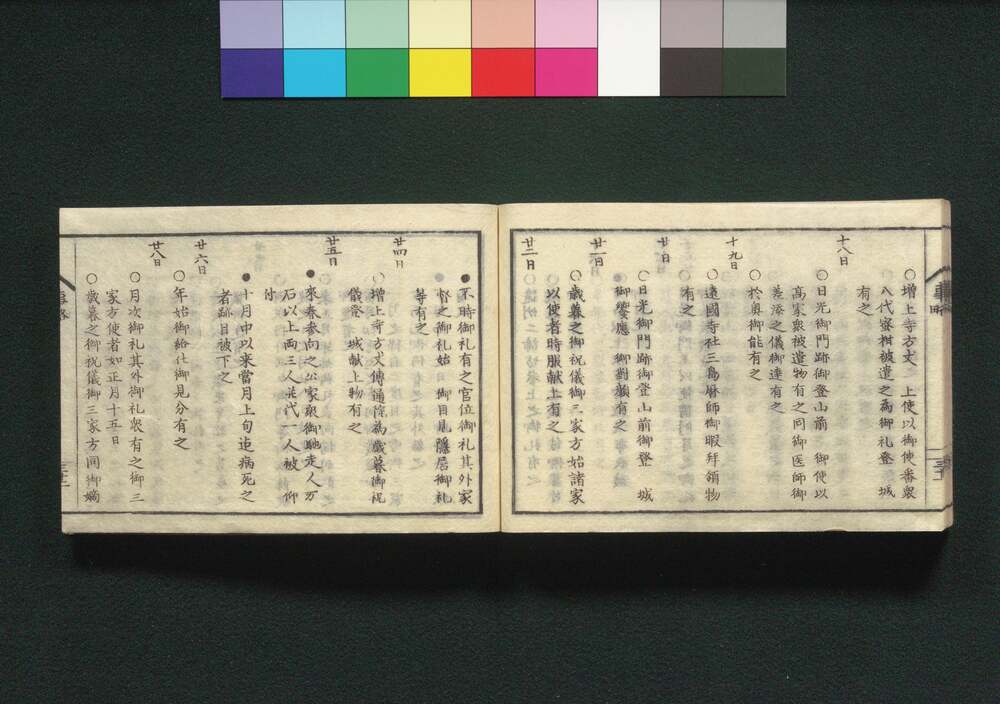 ○増上寺方丈　上使以御使番衆
八代蜜柑被遣之為御礼登　城
有之
十八日
○日光御門跡御登山前　御使以
高家衆被遣物有之同御医師御
差添之儀御達有之
○於奥御能有之
十九日
○遠國寺社三島暦師御暇拜領物
有之
廿日
○日光御門跡御登山前御登　城
御饗應　御對顔有之
廿一日
○歳暮之御祝儀御三家方始諸家
以使者時服献上有之
廿二日
●不時御礼有之官位御礼其外家
督之御礼始　御目見隠居御礼
等有之
廿四日
○増上寺方丈傳通院為歳暮御祝
儀登　城献上物有之
廿五日
●來春参向之公家衆御馳走人万
石以上両三人其代一人被　仰
付
●十月中以来當月上旬迄病死之
者跡目被下之
廿六日
○年始御給仕御見分有之
廿八日
○月次御礼其外御礼衆有之御三
家方使者如正月十五日
○歳暮之御祝儀御三家方同御嫡